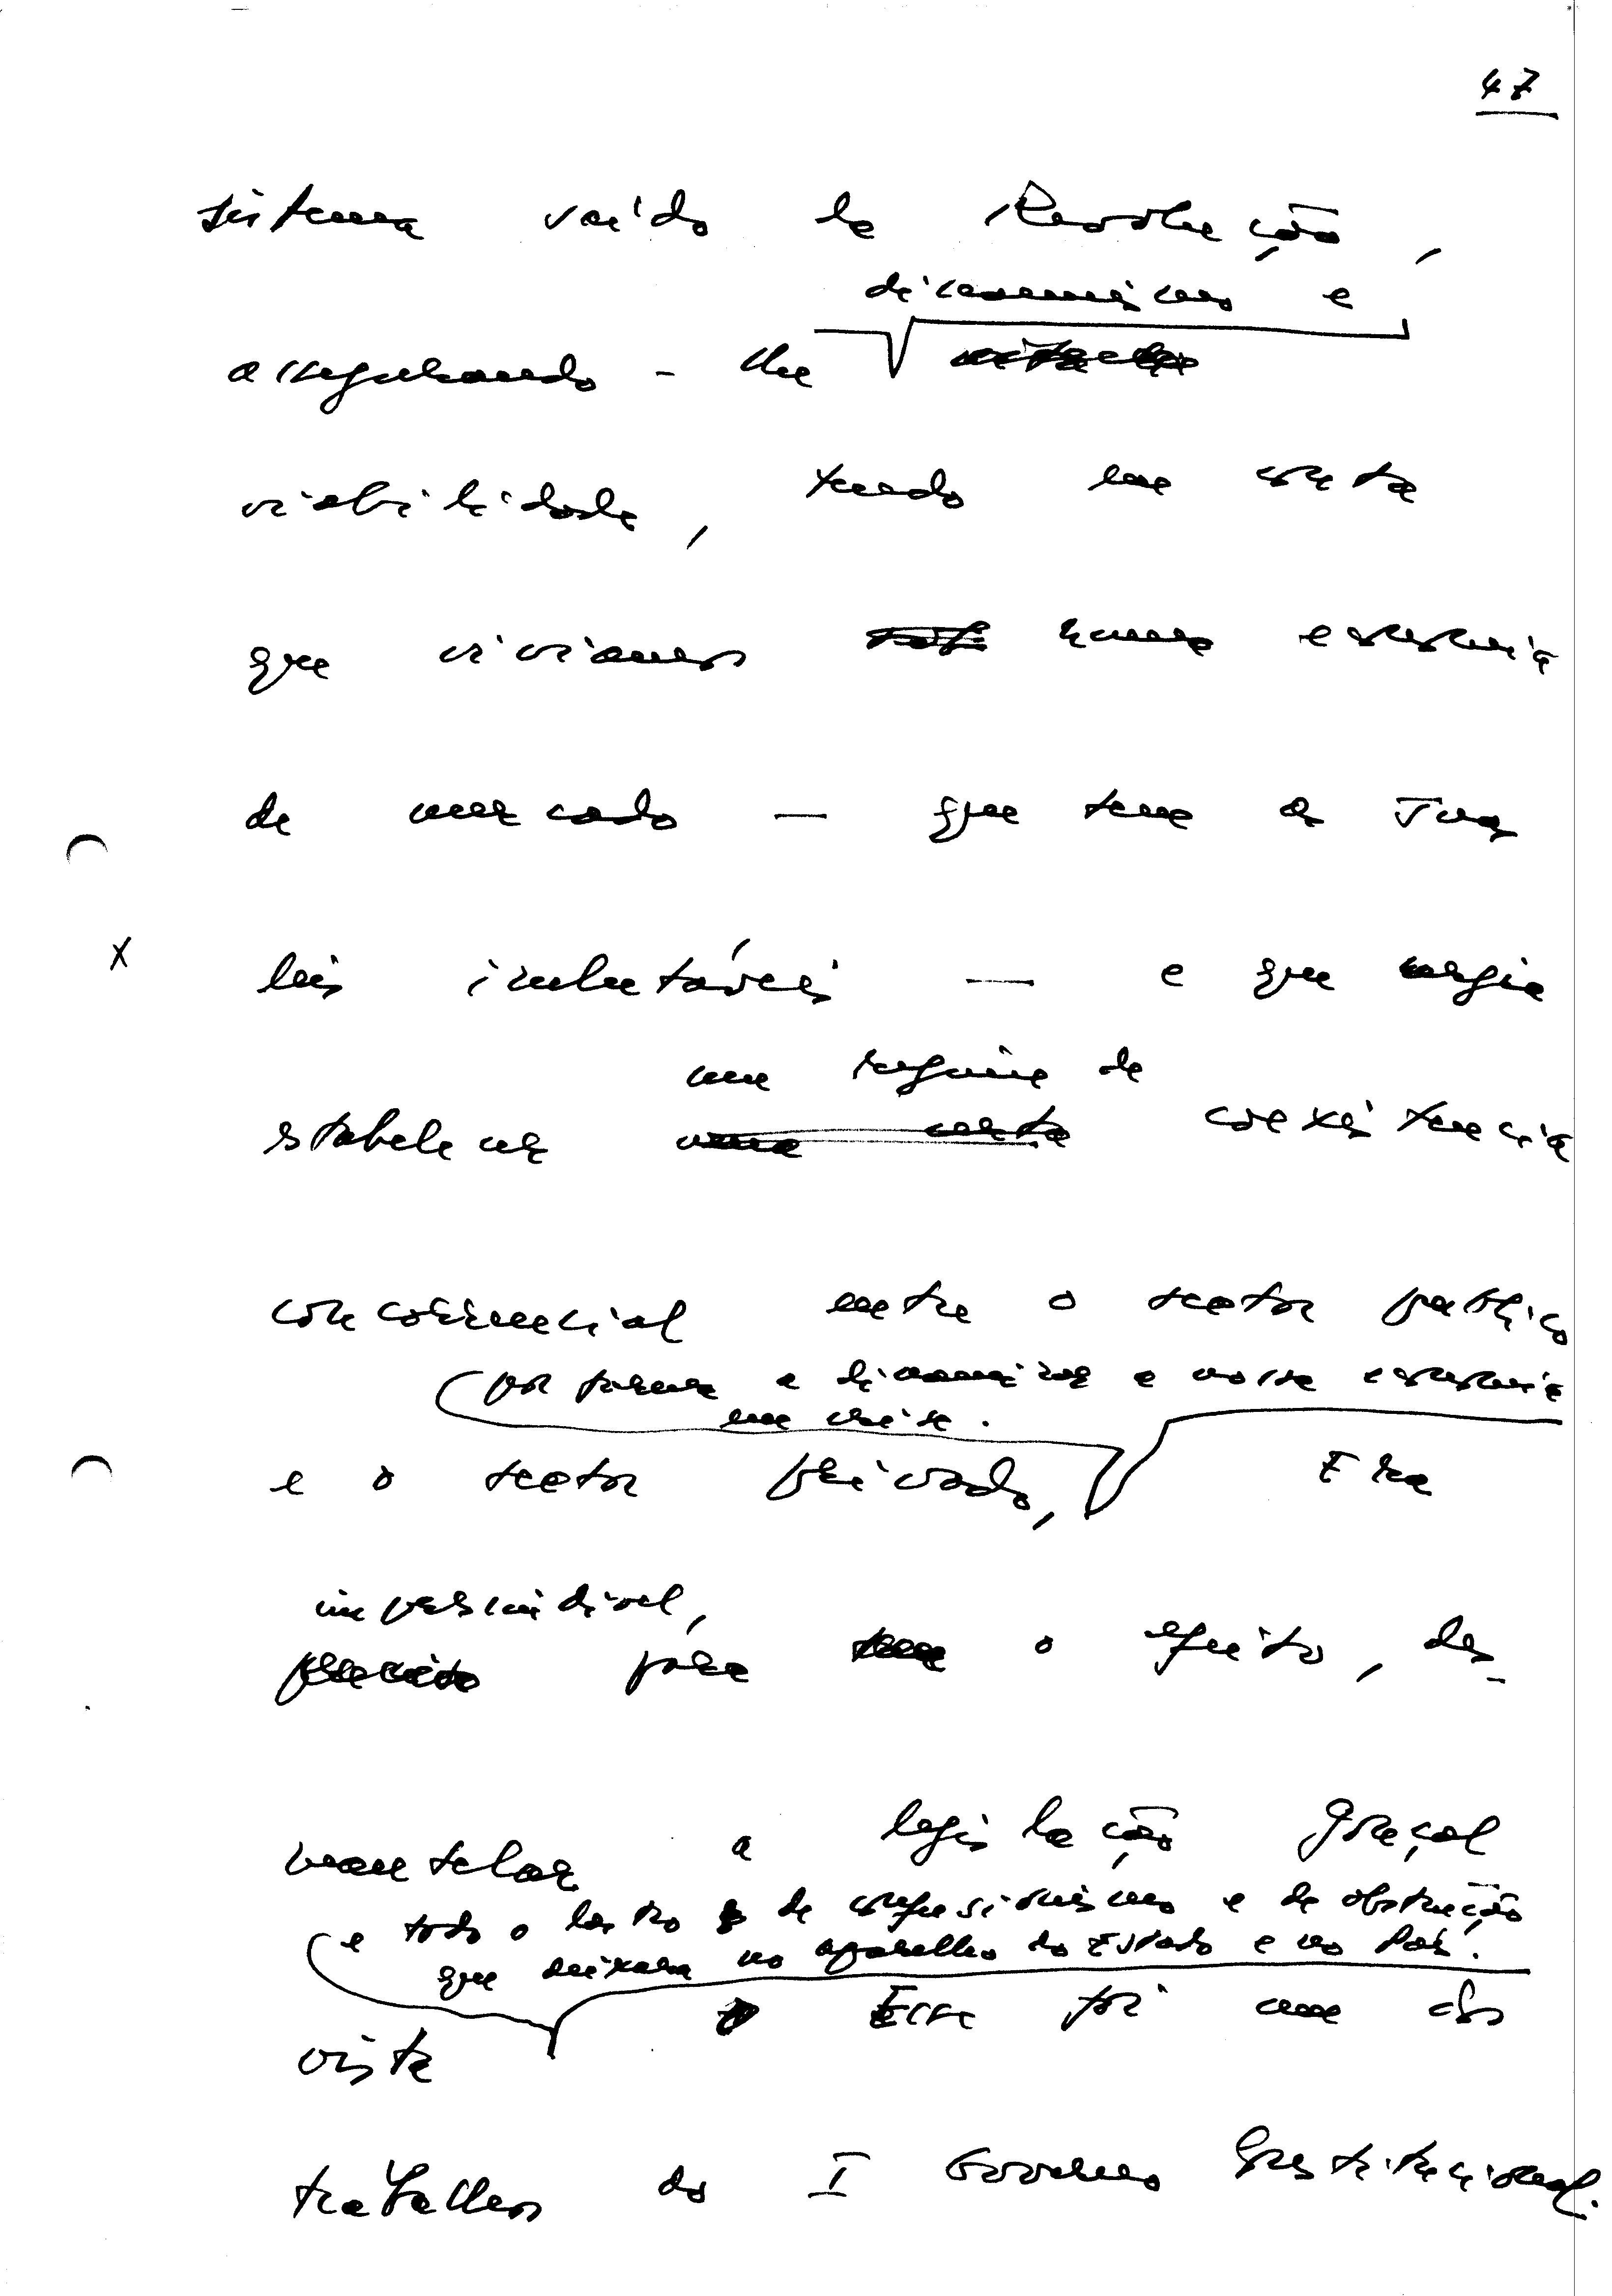 47
sistema saído da Revolução,
dinamismo e
assegurando-lhe
viabilidade, tendo em conta
que viviamos numa economia
de mercado — que tem as suas
leis imutáveis — e que urgia
um regime de
estabelecer uma certa coexistencia
concorrencial entre o sector publico
por forma a dinamizar a nossa economia
em crise.
e o sector privado, Era
imprescindivel,
preciso para o efeito, des-
mantelar a legislação gonçal
e todo o lastro de confusionismo e de obstrução
que deixara no aparelho do Estado e no País.
vista Esse foi um dos
trabalhos do I Governo Constitucional.